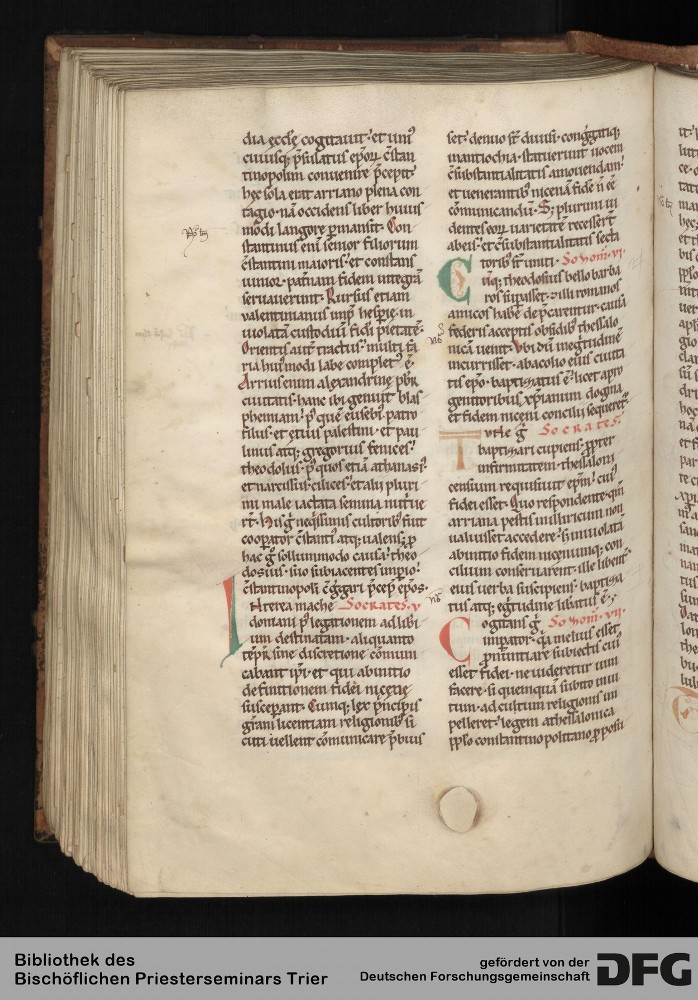 dia eccłę cogitauit · et uni᷒
cuiusq; p̄sulatus ep̄oꝝ c̄stan
tinopolim conuenire p̄cepit ·
hęc sola erat arriano plena con
tagio · nā occidens liber huius
modi langore ꝑmansit · Con
stantinus enī senior filiorum
c̄stantini maioris · et constans
iunior · patnam fidem integrā
seruauerunt · Rursus etiam
ualentinianus imp̄r hesperię · in
uiolatā custodiuit fidei pietatē ·
Orientis aut̄ tractus · multi fa
ria hui᷒modi labe complet᷒ ē ·
Arrius enim alexandrinę pb̄r
ciuitatis · hanc ibi genuit blas
phemiam · p᷒ quē eusebi᷒ patro
filus · et etius palestini · et pau
linus atq; gregorius fenices ·
theodolus · p᷒ quos etiā athanasi᷒
et narcissus · cilices · et alii pluri
mi male iactata semina nutrie
rt̄ · His g̊ neq̄ssimis cultorib᷒ fuit
cooperator c̄stanti᷒ atq; ualens · ꝓ
hac g̊ sollummodo causa · theo
dosius · suo subiacentes imperio ·
c̄stantinopoli c̄gregari p̄cep̄ ep̄os ·
Nterea mache Socrates · v
doniani p᷒ legationem ad libi
um destinatam · aliquanto
temp̄r sine discretione cōmuni
cabant ip̄i · et qui ab initio
definitionem fidei nicene
susceperant · Cumq; lex principis
grani licentiam religionib᷒ si
cuti uellent cōmunicare p̄buis
set · denuo st̄ diuisi · congregatiq;
in antiochia · statuerunt uocem
c̄substantialitatis amouendam ·
et uenerantib᷒ nicenā fidē n̄ eē
cōmunicandū · S; plurimi ui
dentes eoꝝ uarietatē recesserr̄
ab eis · et c̄substantialitatis secta
toribus st̄ uniti · Sozom̄ · vi ·
Cūq; theodosius bello barba
ros supasset · et illi romanos
amicos habere dep̄carentur · causa
federis acceptis obsidib᷒ thessalo
nicā uenit · Vbi dū inegritudinē
incurrisset · ab acolio eius ciuita
tis ep̄o · baptizatus ē · licet a pro
genitoribus xp̄ianum dogma
et fidem niceni concilii sequeret᷒ ·
Tunc g̊ Socrates ·
baptizari cupiens · ꝓpter
infirmitatem · thessaloni
censium requisiuit ep̄m · cui᷒
fidei esset · Quo respondente · qm̄
arriana pestis in illiricum non
ualuisset accedere · s; inuiolata
ab initio fidem nicenumq; con
cilium conseruarent · ille libent᷒
eius uerba suscipiens · baptiza
tus atq; egritudine libatus ē ·
Cogitans g̊ Sozom̄ · vii ·
imperator · q̄a melius esset
ꝓnuntiare subiectis cui᷒
esset fidei · ne uideretur uim
facere · si quemquā subito inui
tum · ad cultum religionis im
pelleret · legem a thessalonica
pp̄lo constantinopolitano ꝓposui
Bibliothek des
Bischöflichen Priesterseminars Trier
gefördert von der
Deutschen Forschungsgemeinschaft
DFG